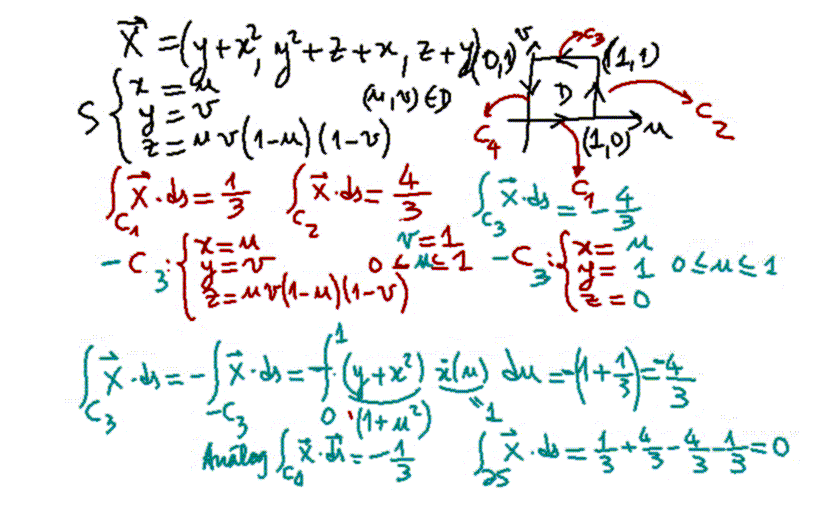 X⃗ = (y+x², y²+z+x, z+y)
S { x = u
y = v
z = uv(1-u)(1-v)
(u,v) ∈ D
(0,1) v C₃ (1,1)
D
C₄ C₂
(1,0) u
C₁
∫_C₁ X⃗·ds = 1/3 ∫_C₂ X⃗·ds = 4/3 ∫_C₃ X⃗·ds = -4/3
-C₃: { x = u
y = v
z = uv(1-u)(1-v)
v = 1
0 ≤ u ≤ 1
-C₃: { x = u
y = 1
z = 0
0 ≤ u ≤ 1
∫_C₃ X⃗·ds = -∫_-C₃ X⃗·ds = -∫₀¹ (y+x²) ẋ(u) du = -(1+1/3) = -4/3
(1+u²) = 1
Analog ∫_C₄ X⃗·du⃗ = -1/3 ∫_∂S X⃗·ds = 1/3 + 4/3 - 4/3 - 1/3 = 0